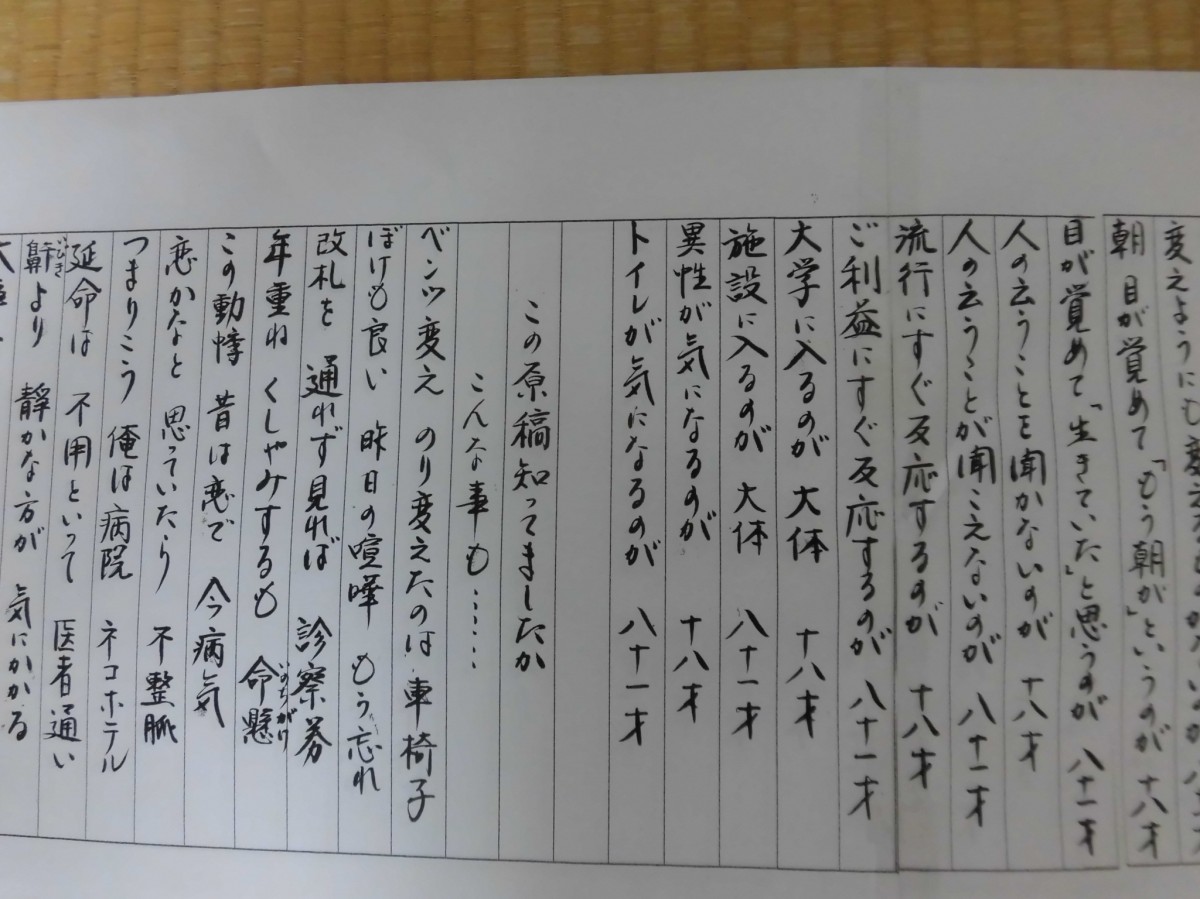 朝 目が覚めて「もう朝か」というのが 十八才
目が覚めて「生きていた」と思うのが 八十一才
人の云うことを聞かないのが 十八才
人の云うことが聞こえないのが 八十一才
流行にすぐ反応するのが 十八才
ご利益にすぐ反応するのが 八十一才
大学に入るのが 大体 十八才
施設に入るのが 大体 八十一才
異性が気になるのが 十八才
トイレが気になるのが 八十一才
この原稿知ってましたか
こんな事も……
ベンツ変え のり変えたのは 車椅子
ぼけも良い 昨日の喧嘩 もう忘れ
改札を 通れず見れば 診察券
年重ね くしゃみするも 命懸 いのちがけ
この動悸 昔は恋で 今病気
恋かなと 思っていたら 不整脈
つまりこう 俺は病院 ネコホテル
延命は 不用といって 医者通い
鼾 いびき より 静かな方が 気にかかる